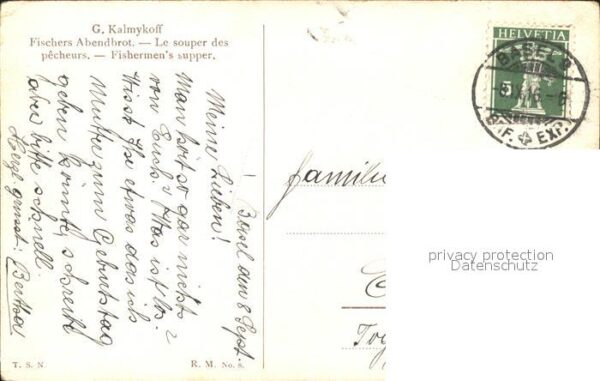 G. Kalmykoff
Fischers Abendbrot. — Le souper des
pêcheurs. — Fishermen's supper.
Basel den 8 Sept.
Meine Lieben!
Man hört so gar nichts
von Euch. Was ist los?
Wisst Ihr etwas das ich
Mutter zum Geburtstag
geben könnte, schreibt
aber bitte schnell.
Herzl. grüsst: Bertha
T. S. N.
R. M. No. 8.
HELVETIA
5
BASEL 2
BRF. EXP.
Famili
privacy protection
Datenschutz